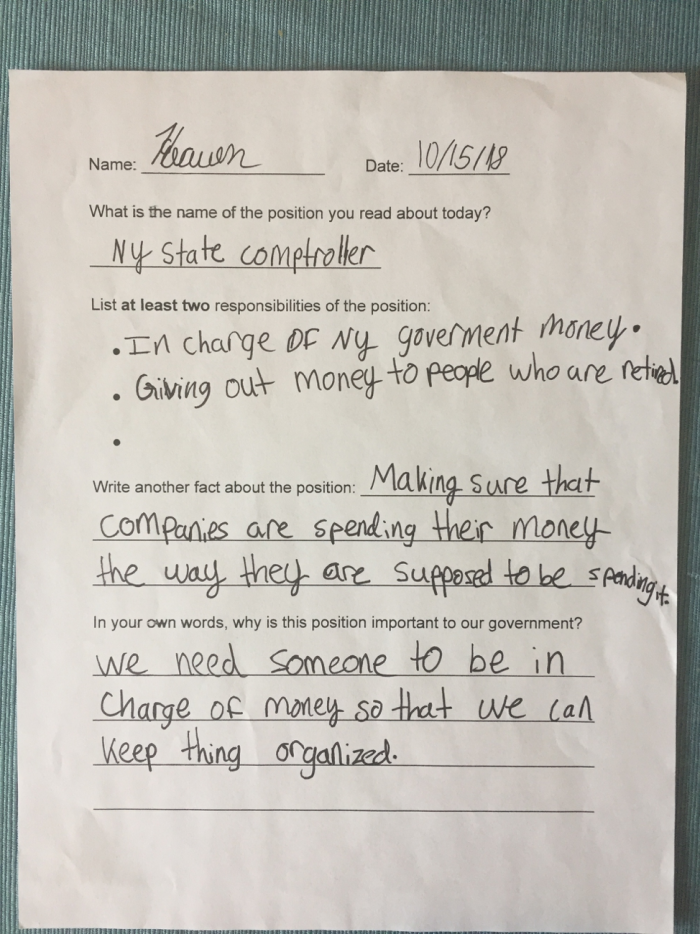 Name: Heaven Date: 10/15/18
What is the name of the position you read about today?
NY state comptroller
List at least two responsibilities of the position:
• In charge OF NY goverment money.
• Giving out money to people who are retired
•
Write another fact about the position: Making sure that
companies are spending their money
the way they are supposed to be spending it.
In your own words, why is this position important to our government?
we need someone to be in
Charge of money so that we can
Keep thing organized.